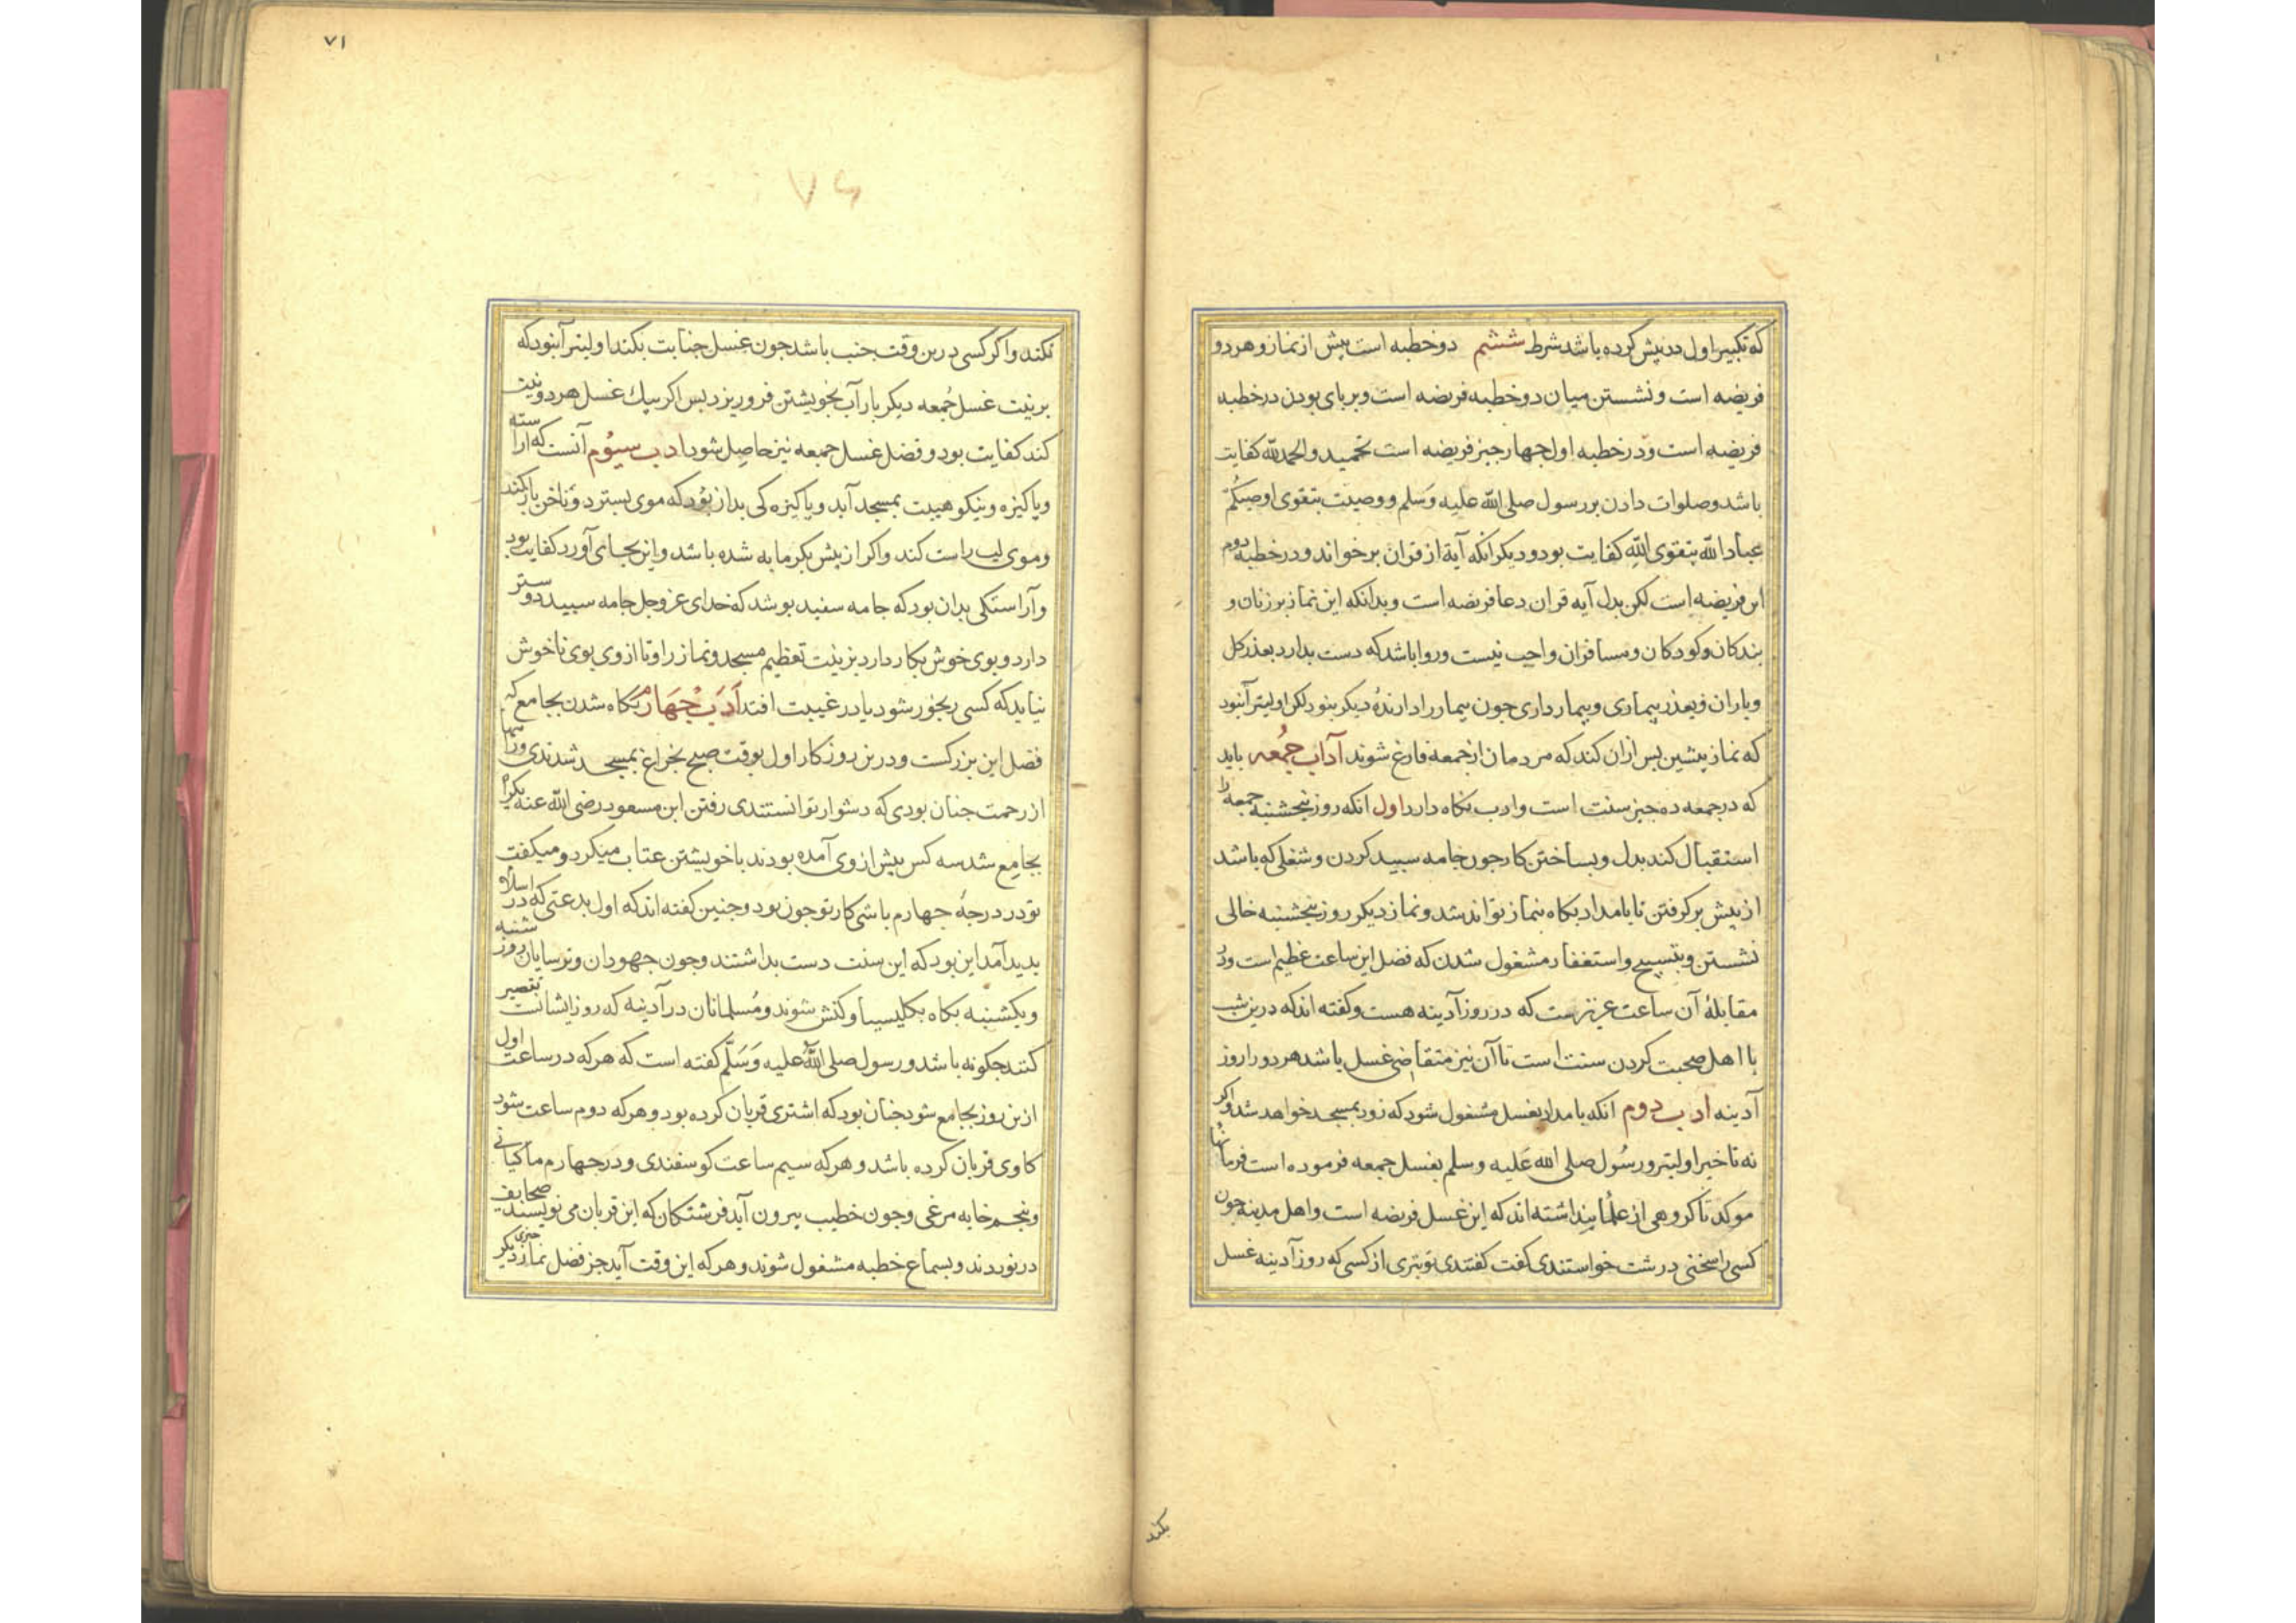 که تکبیر اول در پیش کرده باشد شرط ششم دو خطبه است پیش از نماز و هر دو
فریضه است و نشستن میان دو خطبه فریضه است و بر پای بودن در خطبه
فریضه است و در خطبه اول چهار چیز فریضه است تحمید و الحمدلله کفایت
باشد و صلوات دادن بر رسول صلی الله علیه وسلم و وصیت بتقوی اوصیکم
عباد الله بتقوی الله کفایت بود و دیگر انکه آیة از قران برخواند و در خطبه دوم
این فریضه است لکن بدل آیه قران دعا فریضه است و بدانکه این نماز بر زنان و
بندکان و کودکان و مسافران واجب نیست و روا باشد که دست بدارد بعذر کل
و باران و بعذر بیماری و بیمار داری چون بیمار را دارندهٔ دیکر نبود لکن اولیتر آنبود
که نماز پیشین پس ازان کند که مردمان از جمعه فارغ شوند آداب جمعه باید
که در جمعه ده چیز سنت است و ادب نکاه دارد اول انکه روز پنجشنبه جمعه را
استقبال کند بدل و بساختن کار چون جامه سپید کردن و شغلی که باشد
از پیش برکرفتن تا بامداد بکاه بنماز تواند شد و نماز دیکر روز پنجشنبه خالی
نشستن و بتسبیح و استغفار مشغول شدن که فضل این ساعت عظیم است و در
مقابلهٔ آن ساعت عزیزست که در روز آدینه هست و کفته اند که درین شب
با اهل صحبت کردن سنت است تا آن نیز متقاضی غسل باشد هر دو را روز
آدینه ادب دوم انکه بامداد بغسل مشغول شود که زود بمسجد خواهد شد و اکر
نه تاخیر اولیتر و رسول صلی الله علیه وسلم بغسل جمعه فرموده است فرمانها
موکد تا کروهی از علما پنداشته اند که این غسل فریضه است و اهل مدینه چون
کسی را سخنی درشت خواستندی کفت کفتندی تو بتری از کسی که روز آدینه غسل
بکند
۷۱
۷۶
نکند و اکر کسی درین وقت جنب باشد چون غسل جنابت بکند اولیتر آنبود که
بر نیت غسل جمعه دیکر بار آب بخویشتن فرو ریزد پس اکر بیک غسل هر دو نیت
کند کفایت بود و فضل غسل جمعه نیز حاصل شود ادب سیوم آنست که اراسته
و پاکیزه و نیکو هیبت بمسجد آید و پاکیزه کی بدان بود که موی بسترد و ناخن باز کند
و موی لب راست کند و اکر از پیش بکرمابه شده باشد و این بجای آورد کفایت بود
و آراستکی بدان بود که جامه سفید پوشد که خدای عزوجل جامه سپید دوستر
دارد و بوی خوش بکار دارد بر نیت تعظیم مسجد و نماز را و تا از وی بوی ناخوش
نیاید که کسی رنجور شود یا در غیبت افتد ادب چهارم بکاه شدن بجامع که
فضل این بزرکست و درین روزکار اول بوقت صبح بچراغ بمسجد شدندی و راهها
از زحمت چنان بودی که دشوار توانستندی رفتن ابن مسعود رضی الله عنه یکراه
بجامع شد سه کس پیش از وی آمده بودند با خویشتن عتاب میکرد و میکفت
تو در درجهٔ چهارم باشی کار تو چون بود و چنین کفته اند که اول بدعتی که در اسلام
پدید آمد این بود که این سنت دست بداشتند و چون جهودان و ترسایان روز شنبه
و یکشنبه بکاه بکلیسیا و کنش شوند و مسلمانان در آدینه که روز ایشانست تقصیر
کنند چکونه باشد و رسول صلی الله علیه وسلم کفته است که هرکه در ساعت اول
ازین روز بجامع شود چنان بود که اشتری قربان کرده بود و هرکه دوم ساعت شود
کاوی قربان کرده باشد و هرکه سیم ساعت کوسفندی و در چهارم ماکیانی
و پنجم خایه مرغی و چون خطیب بیرون آید فرشتکان که این قربان می نویسند صحایف
درنوردند و بسماع خطبه مشغول شوند و هرکه این وقت آید جز فضل نماز چیزی دیکر